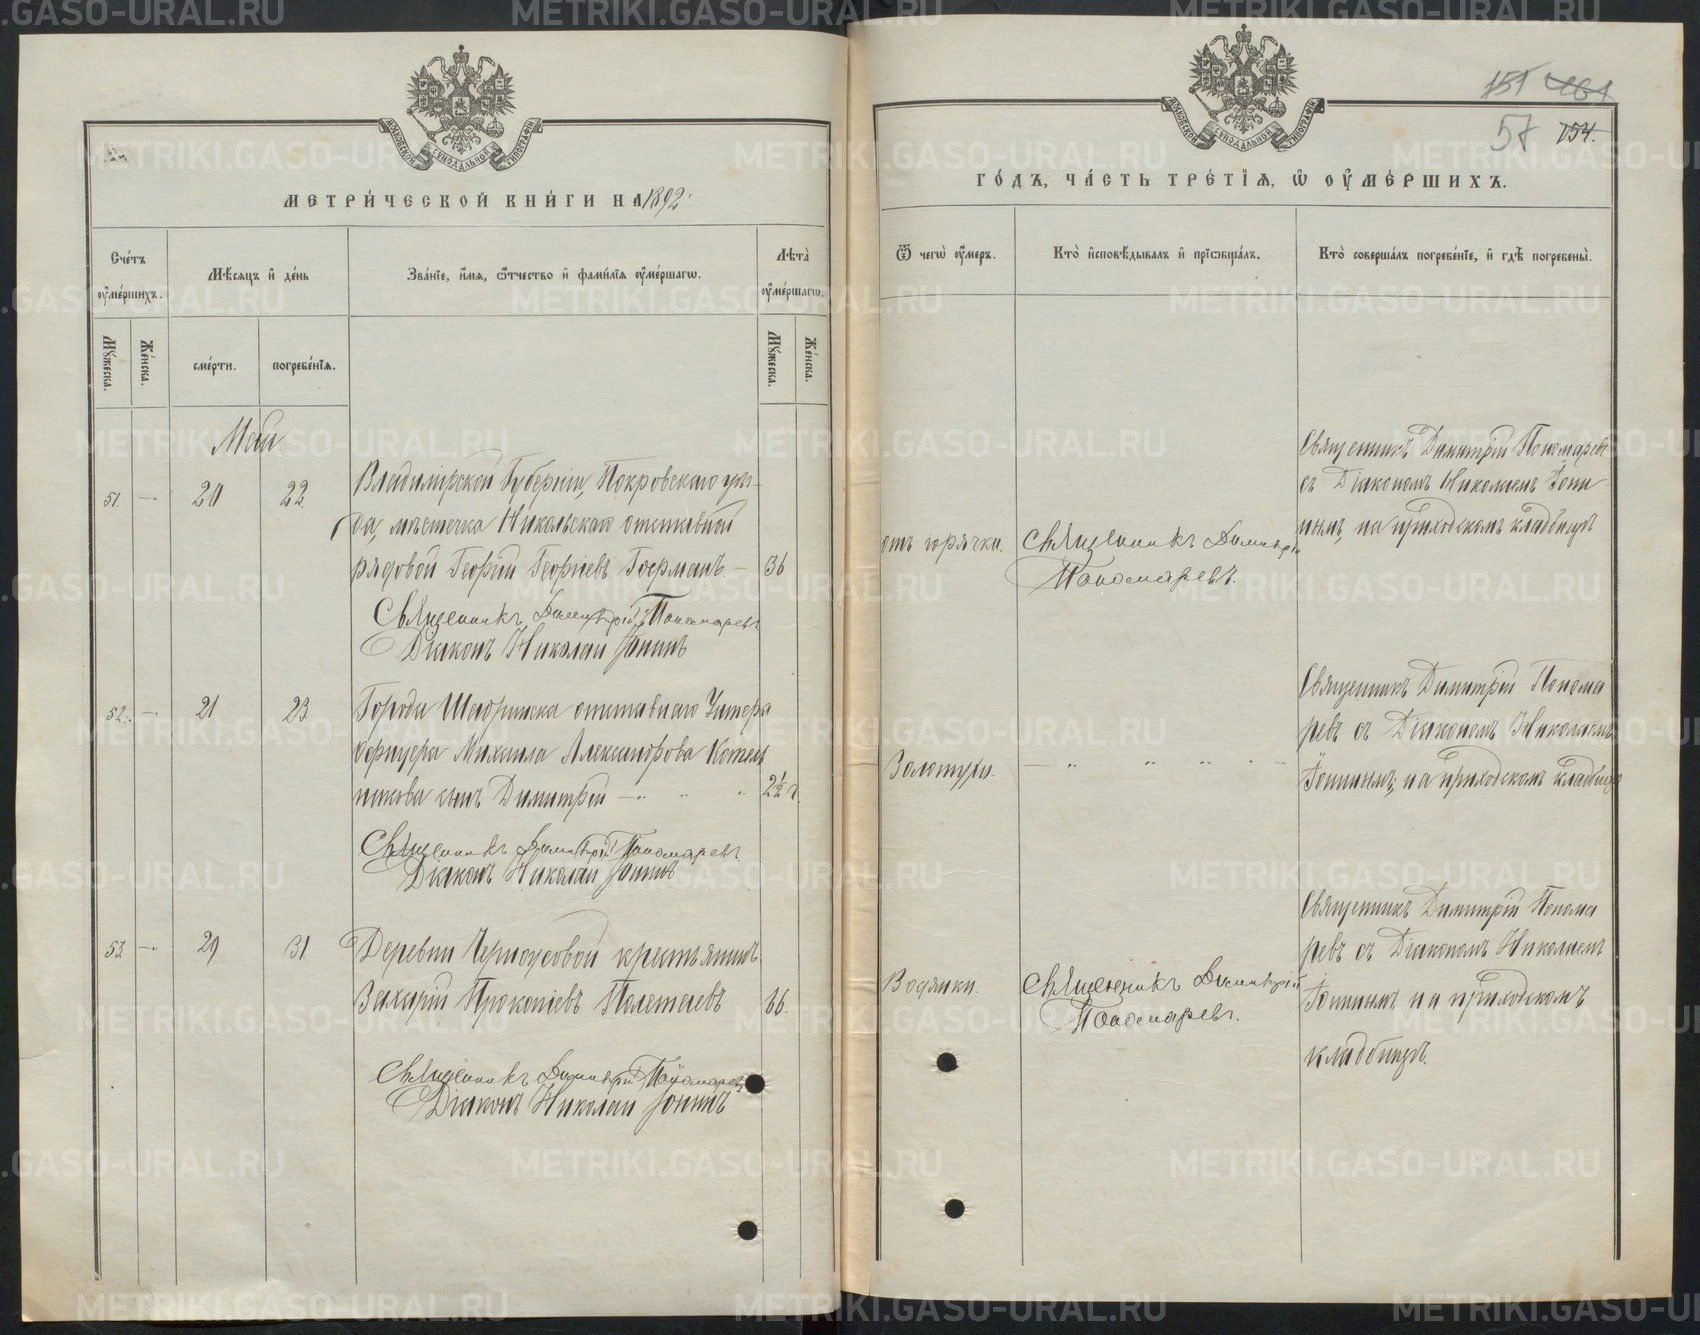 МЕТРИ́ЧЕСКОЙ КНИ́ГИ НА 1892
Сче́тъ оу҆ме́ршихъ.
Мѣ́сяцъ и҆ де́нь
Зва́нїе, и҆́мя, ѻ҆́тчество и҆ фами́лїя оу҆ме́ршагѡ.
Лѣ́та оу҆ме́ршагѡ.
Му́жеска.
Же́нска.
сме́рти.
погребе́нїя.
Му́жеска.
Же́нска.
Маи.
51. — 20 22
Владимірской Губерніи, Покровскаго уѣз-
да, мѣстечка Никольскаго отставной
рядовой Георгій Георгіевъ Госрманъ — 36
Священникъ Димитрій Пономаревъ
Діаконъ Николай Іонинъ
52. — 21 23
Города Шадринска отставнаго Унтеръ
офицера Михаила Александрова Котель
никова сынъ Димитрій — " " " 2½ г.
Священникъ Димитрій Пономаревъ
Діаконъ Николай Іонинъ
53 — 29 31
Деревни Черноусовой крестьянинъ
Захарій Прокопіевъ Полетаевъ 66.
Священникъ Димитрій Пономаревъ
Діаконъ Николай Іонинъ
МОСКОВСКОЙ СѴНОДАЛЬНОЙ ТИПОГРАФІИ
151 161
57 154.
ГО́ДЪ, ЧА́СТЬ ТРЕ́ТІѦ, Ѽ ОУ҆МЕ́РШИХЪ.
Ѿ чегѡ̀ оу҆́меръ.
Кто̀ и҆сповѣ́дывалъ и҆ прїѡбща́лъ.
Кто̀ соверша́лъ погребе́нїе, и҆ гдѣ̀ погребены̀.
отъ горячки.
Священникъ Димитрій
Пономаревъ.
Священникъ Димитрій Пономаревъ
съ Діакономъ Николаемъ Іони
нымъ, на приходскомъ кладбищѣ
Золотухи.
— " " " " —
Священникъ Димитрій Понома
ревъ съ Діакономъ Николаемъ
Іонинымъ, на приходскомъ кладбищѣ
Водянки.
Священникъ Димитрій
Пономаревъ.
Священникъ Димитрій Понома
ревъ съ Діакономъ Николаемъ
Іонинымъ на приходскомъ
кладбищѣ.
METRIKI.GASO-URAL.RU